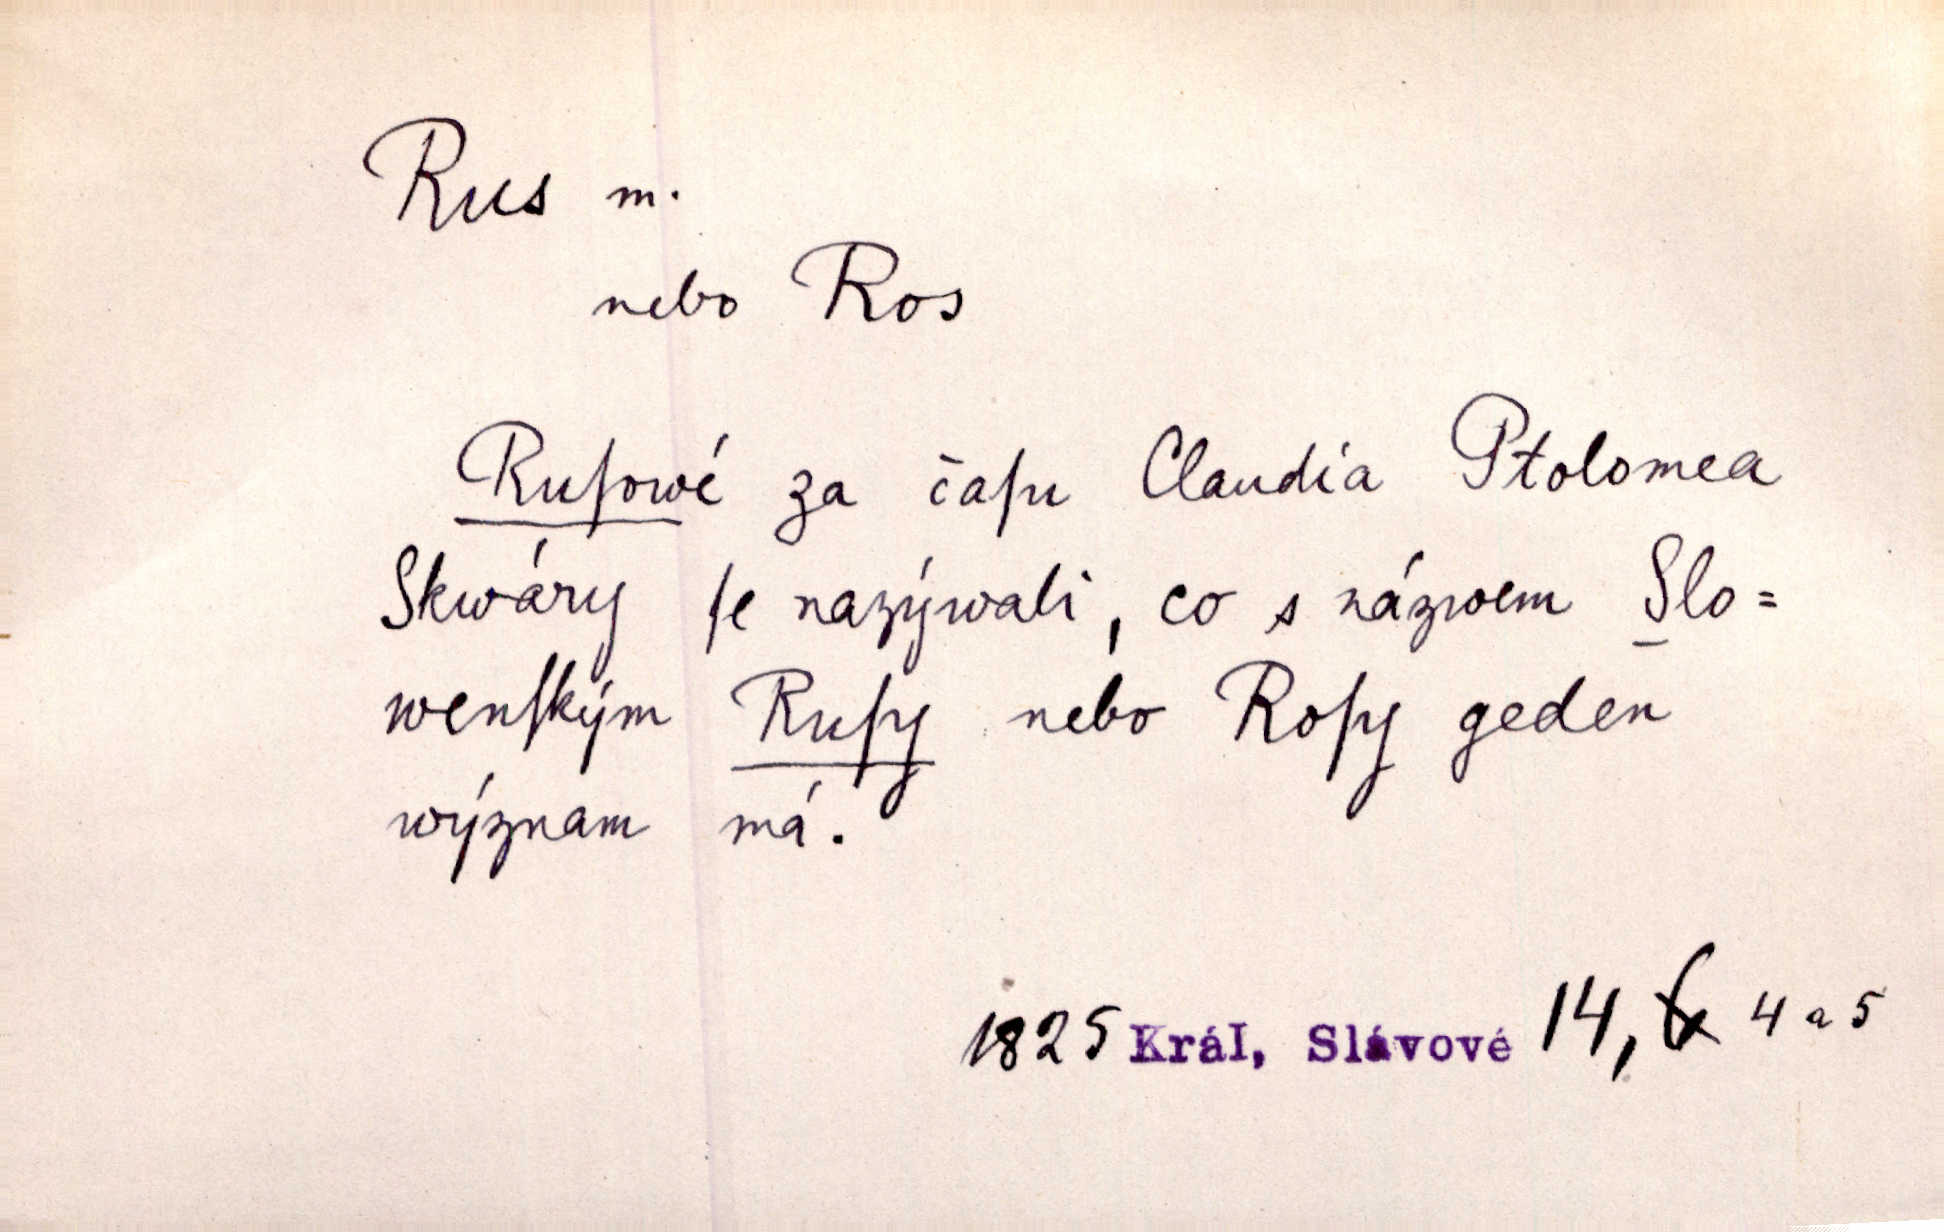 Rus m.
nebo Ros
Ruſowé za čaſu Claudia Ptolomea
Skwáry ſe nazýwali, co s názwem Slo=
wenſkým Ruſy nebo Roſy geden
wýznam má.
1825 Král, Slávové 14, 4 a 5